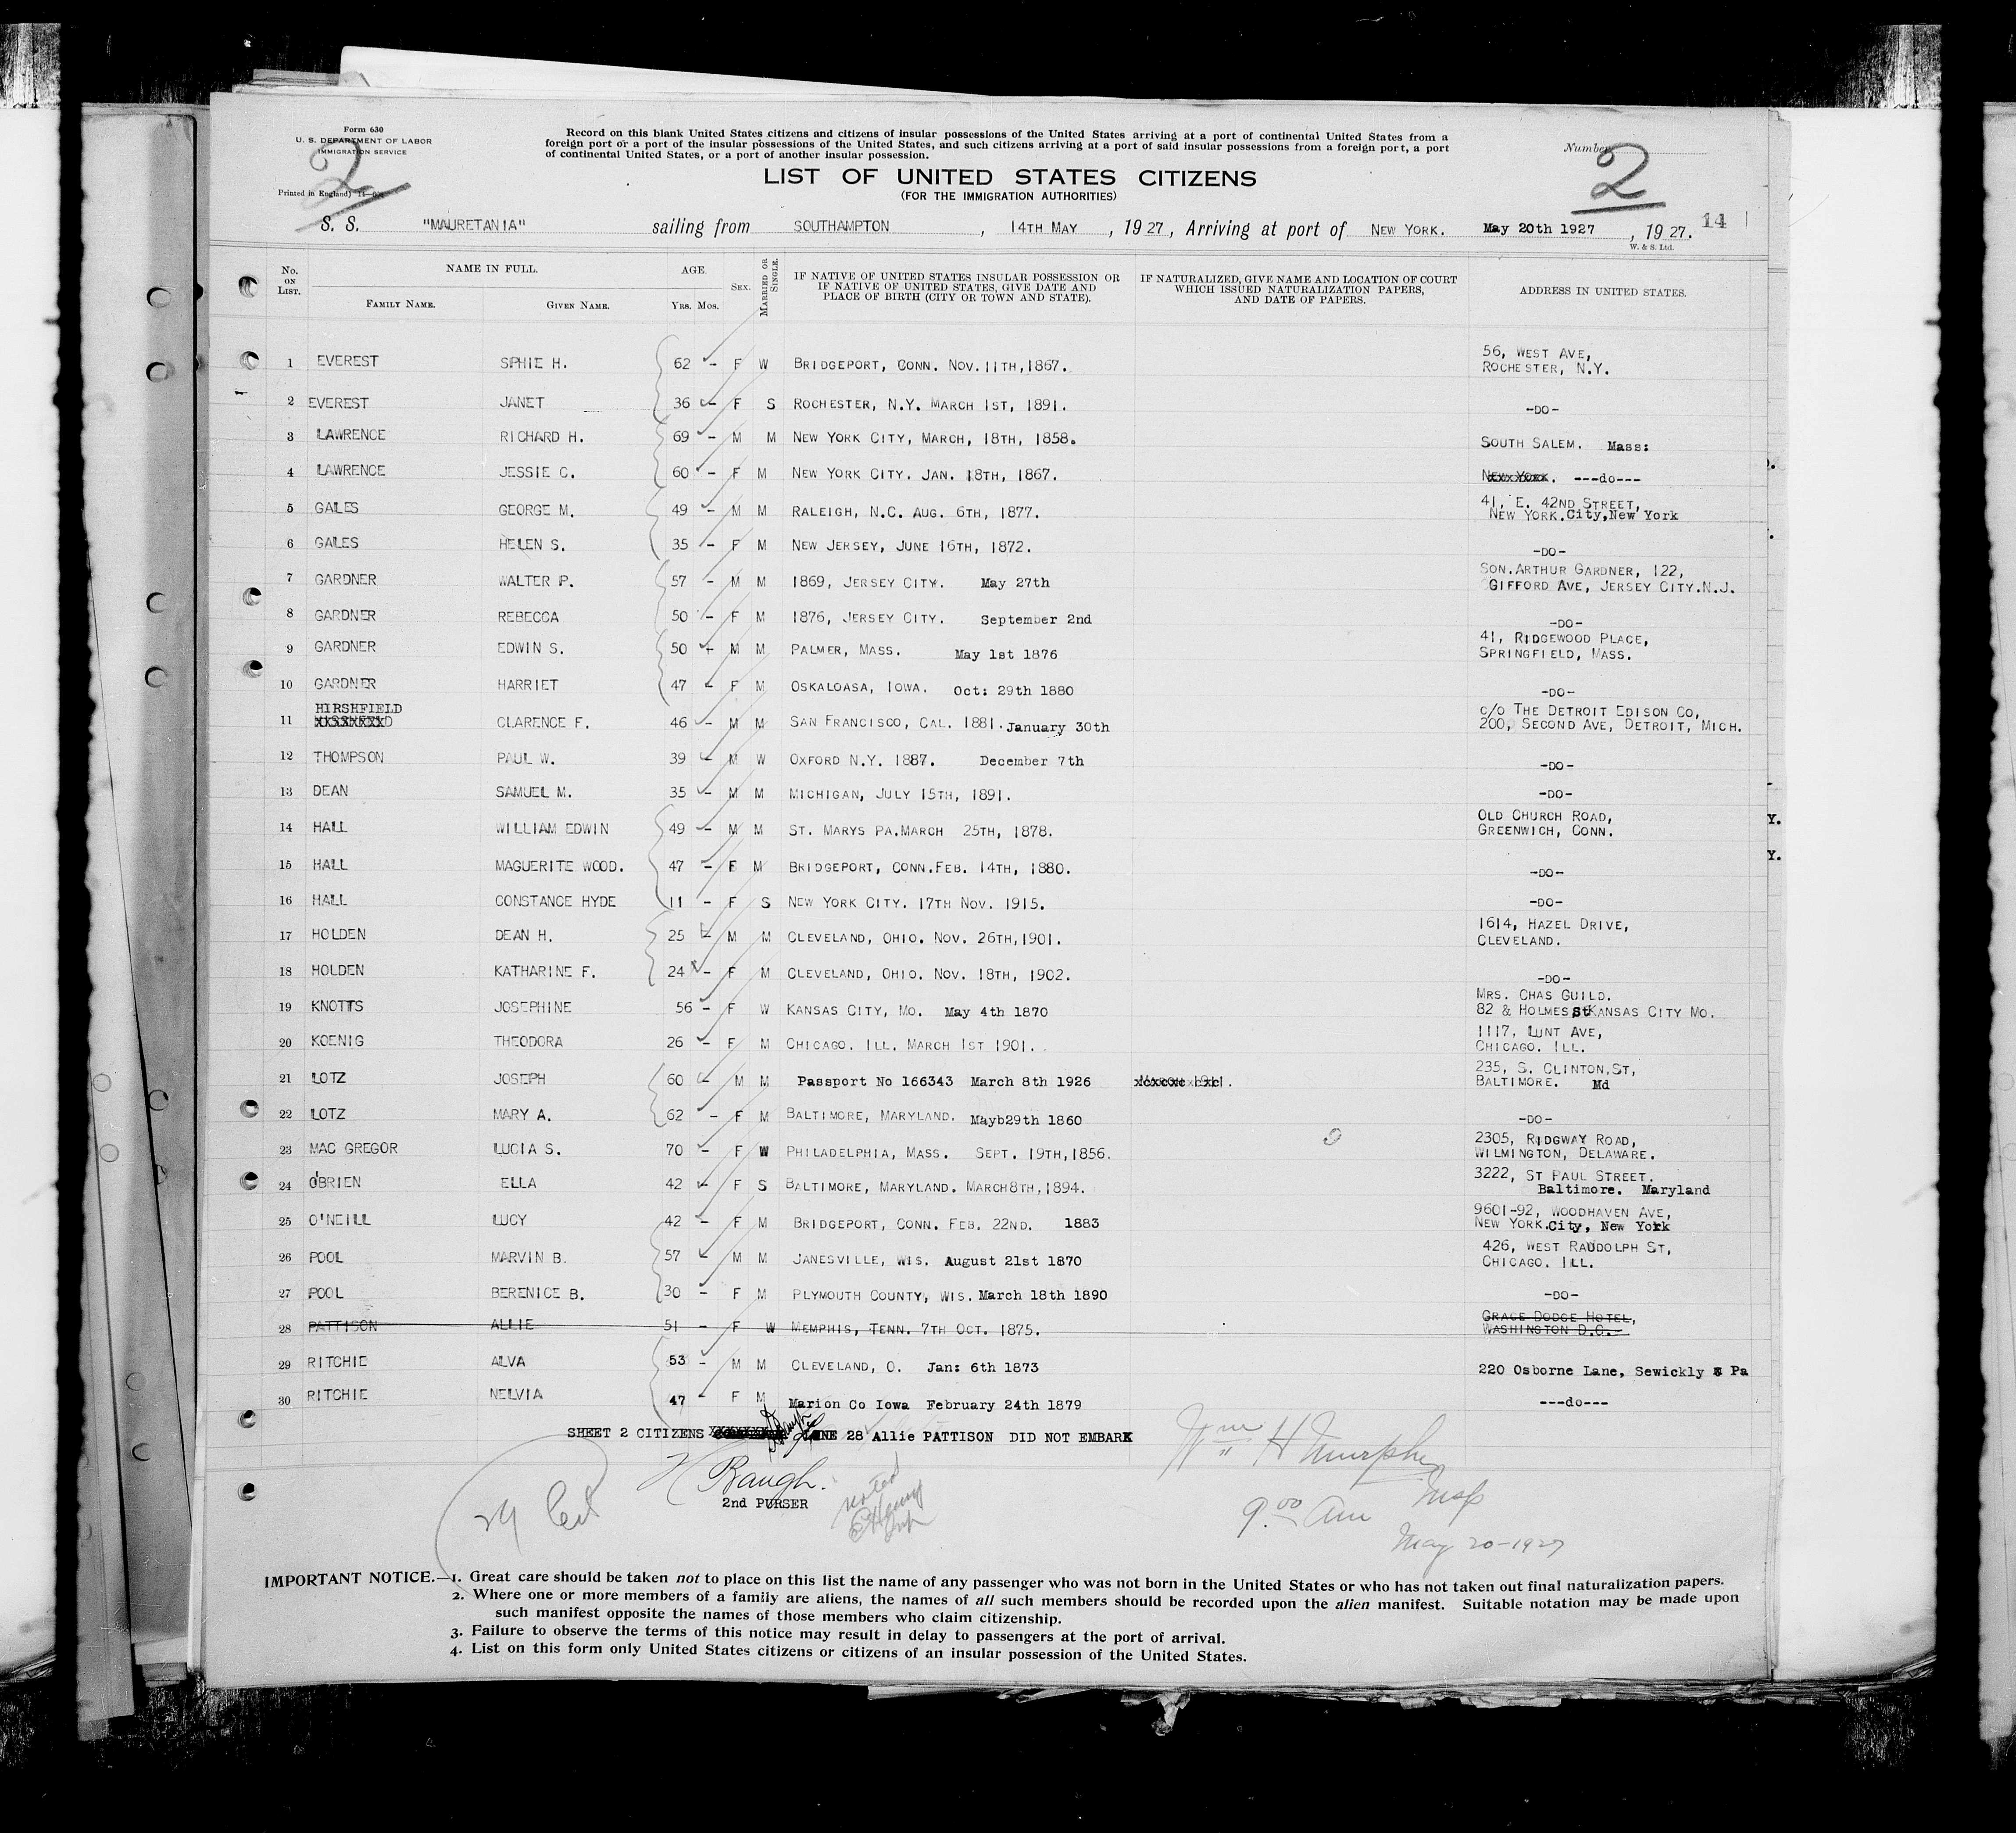 Form 630
U. S. DEPARTMENT OF LABOR
IMMIGRATION SERVICE
Printed in England)
2
Record on this blank United States citizens and citizens of insular possessions of the United States arriving at a port of continental United States from a
foreign port or a port of the insular possessions of the United States, and such citizens arriving at a port of said insular possessions from a foreign port, a port
of continental United States, or a port of another insular possession.
Number
2
LIST OF UNITED STATES CITIZENS
(FOR THE IMMIGRATION AUTHORITIES)
S. S. "MAURETANIA" sailing from SOUTHAMPTON , 14TH MAY , 1927, Arriving at port of NEW YORK. May 20th 1927 , 1927. 14
W. & S. Ltd.
No. ON LIST. NAME IN FULL. FAMILY NAME. GIVEN NAME. AGE YRS. MOS. SEX. MARRIED OR SINGLE. IF NATIVE OF UNITED STATES INSULAR POSSESSION OR IF NATIVE OF UNITED STATES, GIVE DATE AND PLACE OF BIRTH (CITY OR TOWN AND STATE). IF NATURALIZED, GIVE NAME AND LOCATION OF COURT WHICH ISSUED NATURALIZATION PAPERS, AND DATE OF PAPERS. ADDRESS IN UNITED STATES.
1 EVEREST SPHIE H. 62 - F W BRIDGEPORT, CONN. NOV. 11TH, 1867. 56, WEST AVE, ROCHESTER, N.Y.
2 EVEREST JANET 36 - F S ROCHESTER, N.Y. MARCH 1ST, 1891. -DO-
3 LAWRENCE RICHARD H. 69 - M M NEW YORK CITY, MARCH, 18TH, 1858. SOUTH SALEM. Mass:
4 LAWRENCE JESSIE C. 60 - F M NEW YORK CITY. JAN. 18TH, 1867. NEW YORK. ---do---
5 GALES GEORGE M. 49 - M M RALEIGH, N.C. AUG. 6TH, 1877. 41, E. 42ND STREET, NEW YORK.City,New York
6 GALES HELEN S. 35 - F M NEW JERSEY, JUNE 16TH, 1872. -DO-
7 GARDNER WALTER P. 57 - M M 1869, JERSEY CITY. May 27th SON.ARTHUR GARDNER, 122, GIFFORD AVE, JERSEY CITY.N.J.
8 GARDNER REBECCA 50 - F M 1876, JERSEY CITY. September 2nd -DO-
9 GARDNER EDWIN S. 50 - M M PALMER, MASS. May 1st 1876 41, RIDGEWOOD PLACE, SPRINGFIELD, MASS.
10 GARDNER HARRIET 47 - F M OSKALOASA, IOWA. Oct: 29th 1880 -DO-
11 HIRSHFIELD CLARENCE F. 46 - M M SAN FRANCISCO, CAL. 1881. January 30th C/O THE DETROIT EDISON CO, 200, SECOND AVE, DETROIT, MICH.
12 THOMPSON PAUL W. 39 - M W OXFORD N.Y. 1887. December 7th -DO-
13 DEAN SAMUEL M. 35 - M M MICHIGAN, JULY 15TH, 1891. -DO-
14 HALL WILLIAM EDWIN 49 - M M ST. MARYS PA.MARCH 25TH, 1878. OLD CHURCH ROAD, GREENWICH, CONN.
15 HALL MAGUERITE WOOD. 47 - F M BRIDGEPORT, CONN.FEB. 14TH, 1880. -DO-
16 HALL CONSTANCE HYDE 11 - F S NEW YORK CITY. 17TH NOV. 1915. -DO-
17 HOLDEN DEAN H. 25 - M M CLEVELAND, OHIO. NOV. 26TH,1901. 1614, HAZEL DRIVE, CLEVELAND.
18 HOLDEN KATHARINE F. 24 - F M CLEVELAND, OHIO. NOV. 18TH, 1902. -DO-
19 KNOTTS JOSEPHINE 56 - F W KANSAS CITY, MO. May 4th 1870 MRS. CHAS GUILD. 82 & HOLMES St KANSAS CITY MO.
20 KOENIG THEODORA 26 - F M CHICAGO. ILL. MARCH 1ST 1901. 1117, LUNT AVE, CHICAGO. ILL.
21 LOTZ JOSEPH 60 - M M Passport No 166343 March 8th 1926 235, S. CLINTON,ST, BALTIMORE. Md
22 LOTZ MARY A. 62 - F M BALTIMORE, MARYLAND. Mayb29th 1860 -DO-
23 MAC GREGOR LUCIA S. 70 - F W PHILADELPHIA, MASS. SEPT. 19TH,1856. 2305, RIDGWAY ROAD, WILMINGTON, DELAWARE.
24 O'BRIEN ELLA 42 - F S BALTIMORE, MARYLAND. MARCH8TH,1894. 3222, ST PAUL STREET. Baltimore. Maryland
25 O'NEILL LUCY 42 - F M BRIDGEPORT, CONN. FEB. 22ND. 1883 9601-92, WOODHAVEN AVE, NEW YORK.City, New York
26 POOL MARVIN B. 57 - M M JANESVILLE, WIS. August 21st 1870 426, WEST RAUDOLPH ST, CHICAGO. ILL.
27 POOL BERENICE B. 30 - F M PLYMOUTH COUNTY, WIS. March 18th 1890 -DO-
28 PATTISON ALLIE 51 - F W MEMPHIS, TENN. 7TH OCT. 1875. GRACE DODGE HOTEL, WASHINGTON D.C.
29 RITCHIE ALVA 53 - M M CLEVELAND, O. Jan: 6th 1873 220 Osborne Lane, Sewickly Pa
30 RITCHIE NELVIA 47 - F M Marion Co Iowa February 24th 1879 ---do---
SHEET 2 CITIZENS LINE 28 Allie PATTISON DID NOT EMBARK
H Baugh.
2nd PURSER
29 Cit
noted
Wm H Murphy
Insp
9.00 am
May 20-1927
IMPORTANT NOTICE.—1. Great care should be taken not to place on this list the name of any passenger who was not born in the United States or who has not taken out final naturalization papers.
2. Where one or more members of a family are aliens, the names of all such members should be recorded upon the alien manifest. Suitable notation may be made upon
such manifest opposite the names of those members who claim citizenship.
3. Failure to observe the terms of this notice may result in delay to passengers at the port of arrival.
4. List on this form only United States citizens or citizens of an insular possession of the United States.